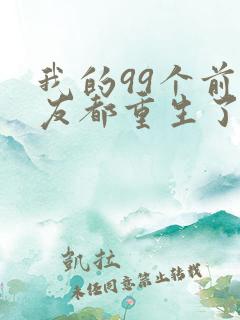 我的99个前
友都重生了
凱拉
未经同意禁止转载